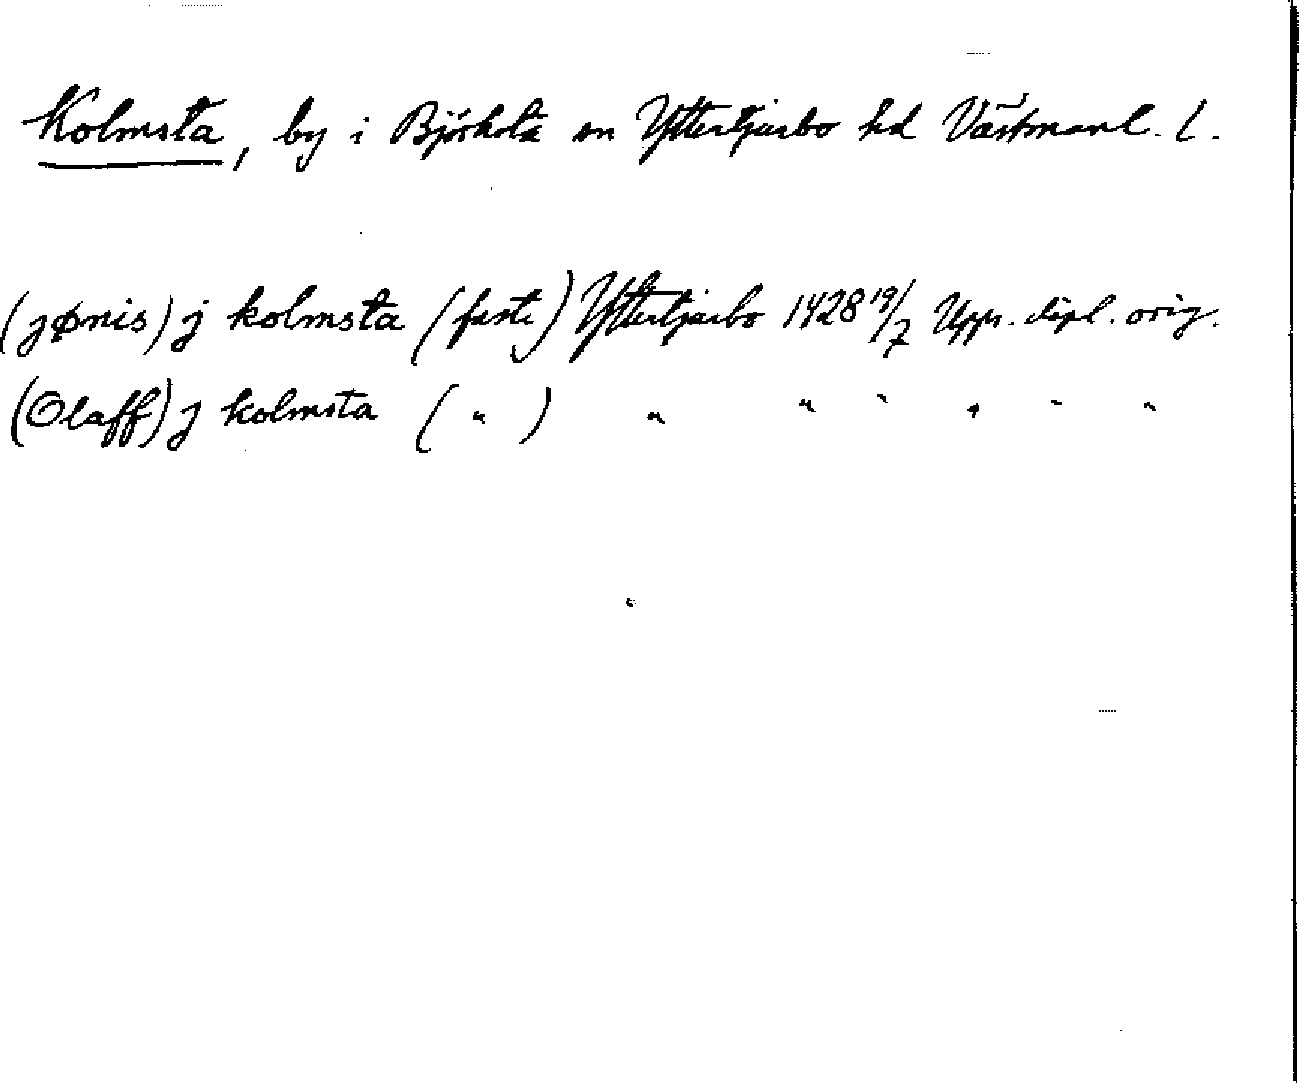 Kolmsta, by i Björksta sn Yttertjurbo hd Västmanl. l.
(jønis) j kolmsta (faste) Yttertjurbo 1428 19/7 Upps. dipl. orig.
(Olaff) j kolmsta ( " ) " " " " " "